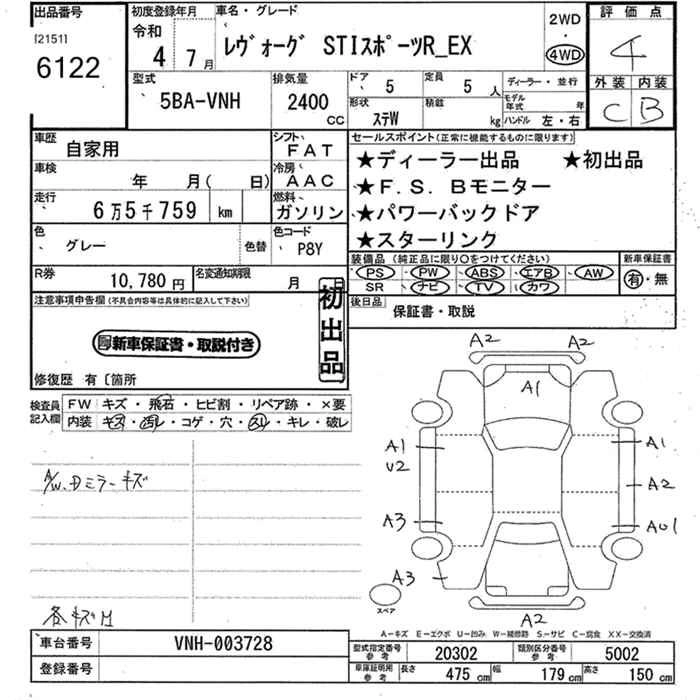 出品番号
[2151]
6122
初度登録年月
令和
4 7月
車名・グレード
ﾚヴｫｰグ STIｽポｰﾂR_EX
2WD
・
4WD
評価点
4
外装 内装
C B
型式
5BA-VNH
排気量
2400
cc
ドア 5
定員 5 人
形状 ｽﾃW
積載 kg
ディーラー・並行
モデル年式 年
ハンドル 左・右
車歴 自家用
シフト FAT
車検 年 月( 日)
冷房 AAC
走行 6万5千759 km
燃料 ガソリン
色 グレー 色替
色コード P8Y
R券 10,780円
名変通知期限 月
セールスポイント(正常に機能するものに限ります)
★ディーラー出品 ★初出品
★F.S.Bモニター
★パワーバックドア
★スターリンク
装備品(純正品に限り○をつけてください)
PS PW ABS エアB AW
SR ナビ TV カワ
新車保証書
有・無
後日品
保証書・取説
注意事項申告欄(不具合内容等は具体的に記入して下さい)
初出品
新車保証書・取説付き
修復歴 有〔箇所
検査員記入欄
FW キズ・飛石・ヒビ割・リペア跡・×要
内装 キズ・汚レ・コゲ・穴・スレ・キレ・破レ
A/W、Dミラーキズ
各キズH
A2 A2
A1
A1 A1
U2
A2
A3 A01
A3
スペア
A2
A―キズ E―エクボ U―凹み W―補修跡 S―サビ C―腐食 XX―交換済
車台番号 VNH-003728
登録番号
型式指定番号 参考 20302
類別区分番号 参考 5002
車庫証明用 参考 長さ 475 cm 幅 179 cm 高さ 150 cm